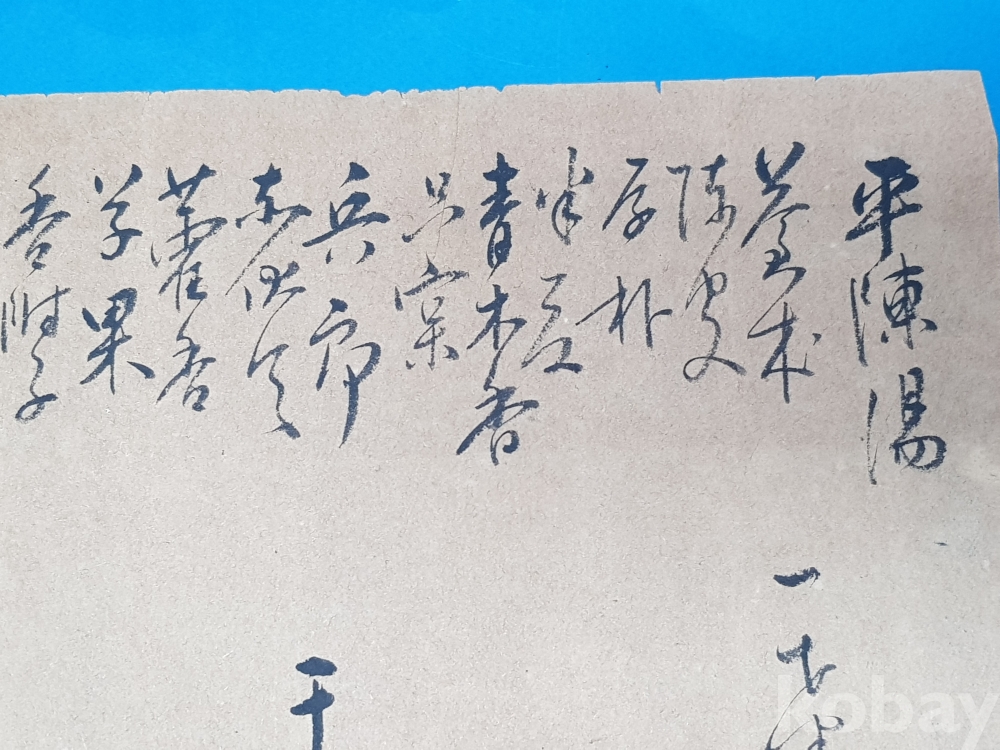 平陳湯
蒼朮
陳皮
厚朴
半夏
青木香
只宲
兵郎
赤茯令
藿香
草果
香附子
一
干
kobay